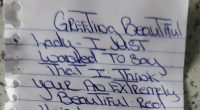 GREETING BEAUTIFUL
Lady. I JUST
wanted TO Say
That I Think
your AN EXTREMELY
Beautiful Real